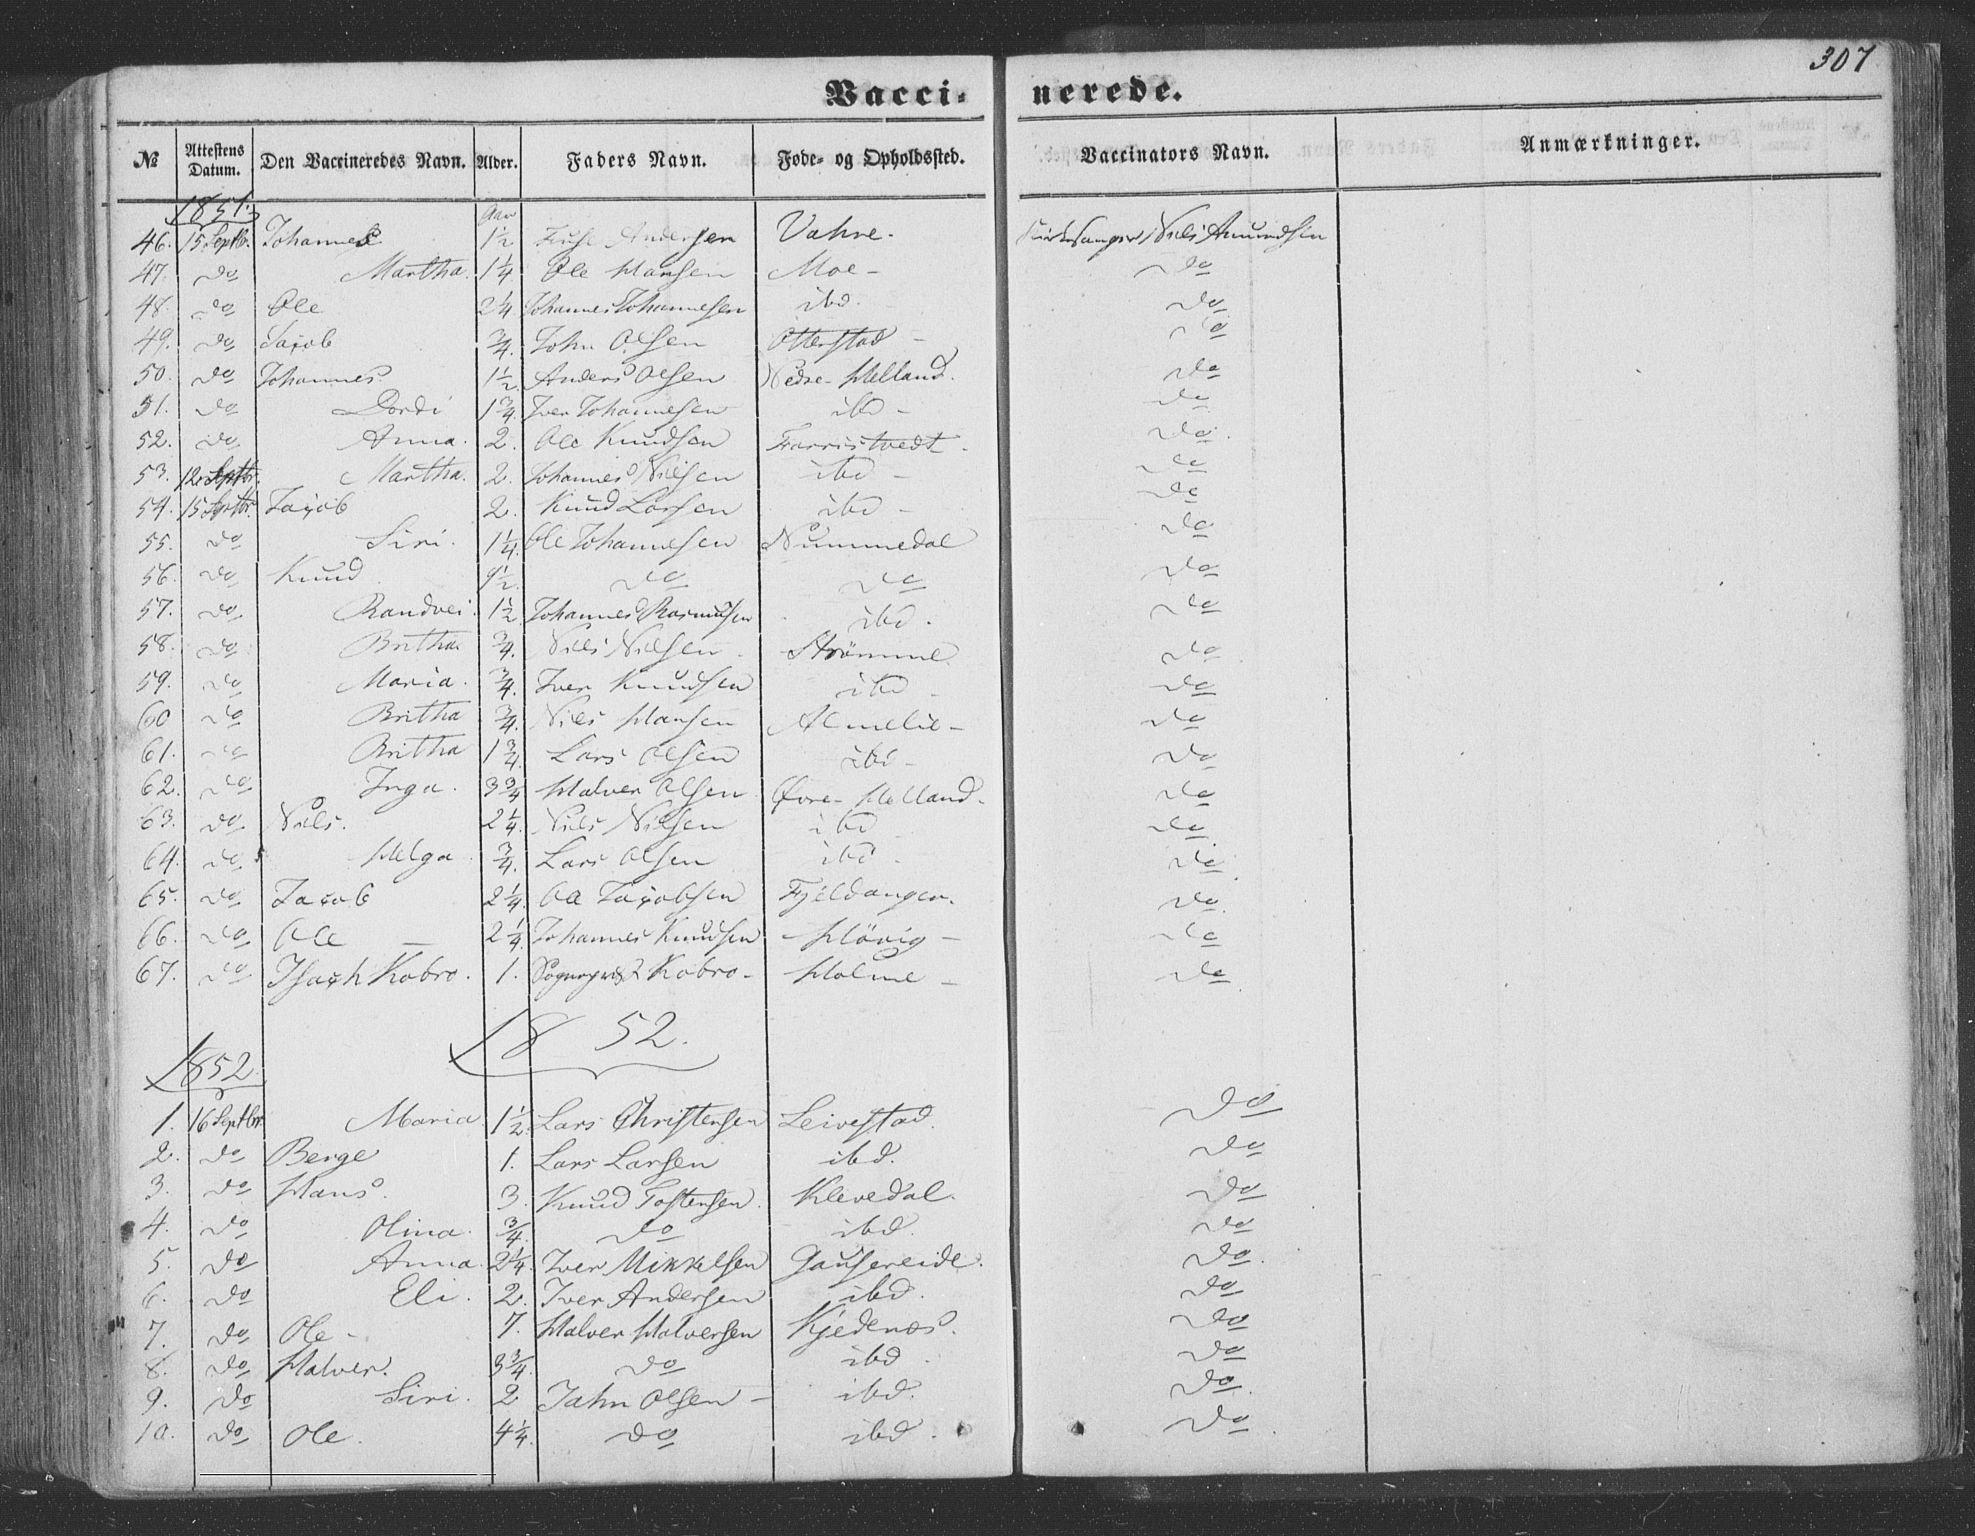 307
Vacci- nerede.
№ Attestens Datum. Den Vaccineredes Navn. Alder. Faders Navn. Føde- og Opholdssted. Vaccinators Navn. Anmærkninger.
1851. Aar
46. 15 Septbr. Johannes 1½ Andersen Vahre. Kirkesanger Niels Amundsen
47. do Martha. 1¼ Ole Hansen Moe - do
48. do Ole 2¼ Johannes Johannesen ibd. do
49. do Jacob ¾. John Olsen Otterstad - do
50. do Johannes. 1½ Anders Olsen Nedre-Helland. do
51. do Dordi 1¾. Iver Johannesen ibd - do
52. do Anna. 2. Ole Knudsen Farristvedt. do.
53. 12 Septbr. Martha. 2. Johannes Nielsen ibd - do
54. 15 Septbr. Jacob 2. Knud Larsen ibd - do
55. do Siri. 1¼. Ole Johannesen Nummedal do
56. do Knud 9½. do do do
57. do Randvei. 1½ Johannes Rasmusen ibd. do
58. do Britha. ¾. Niels Nielsen. Strömme. do
59. do Maria. ¾. Iver Knudsen ibd - do
60 do Britha ¾. Niels Hansen Almelie - do
61. do Britha 1¾. Lars Olsen ibd - do
62. do Inga. 3¾ Halver Olsen Øvre-Helland. do
63. do Niels. 2¼. Niels Nielsen ibd do
64. do Helga ¾. Lars Olsen ibd. do
65. do Jacob 2¼. Ole Jacobsen Fjeldanger. do
66. do Ole - 2¼. Johannes Knudsen Hövig - do
67. do Isach Kobro. 1. Sognepræst Kobro - Holme - do
1852.
1852.
1. 16 Septbr. Maria 1½. Lars Christensen Leivestad. do
2. do Berge 1. Lars Larsen ibd. do
3. do Hans. 3. Knud Tostensen. Klevedal. do
4. do Olina. ¾. do ibd. do
5. do Anna. 2¼. Iver Mikkelsen Gausereide. do.
6. do Eli. 2. Iver Andersen ibd. do
7. do Ole - 7. Halver Halversen Kjedenæs. do
8. do Halver. 3¾. do ibd. do
9. do Siri. 2 Jahn Olsen - ibd. do.
10. do Ole. 4¼. do ibd. do